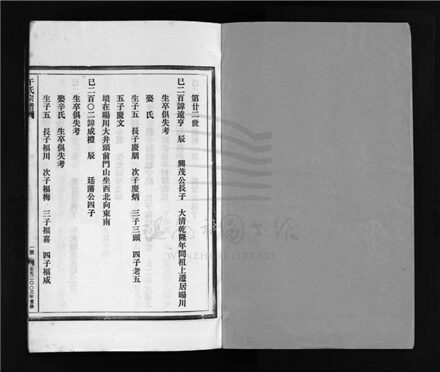 第廿二世
巳二百諱遠亨 辰 興茂公長子 大清乾隆年間祖上遷居暘川
生卒俱失考
娶 氏
生子五 長子慶朋 次子慶炳 三子三頭 四子老五
五子慶文
墳在暘川大井頭前門山坐西北向東南
巳二百〇二諱咸禮 辰 廷藩公四子
生卒俱失考
娶辛氏 生卒俱失考
生子五 長子福川 次子福梅 三子福喜 四子福咸
氏宗譜
一號
公元二〇〇三年重修
WENZHOU LIBRARY